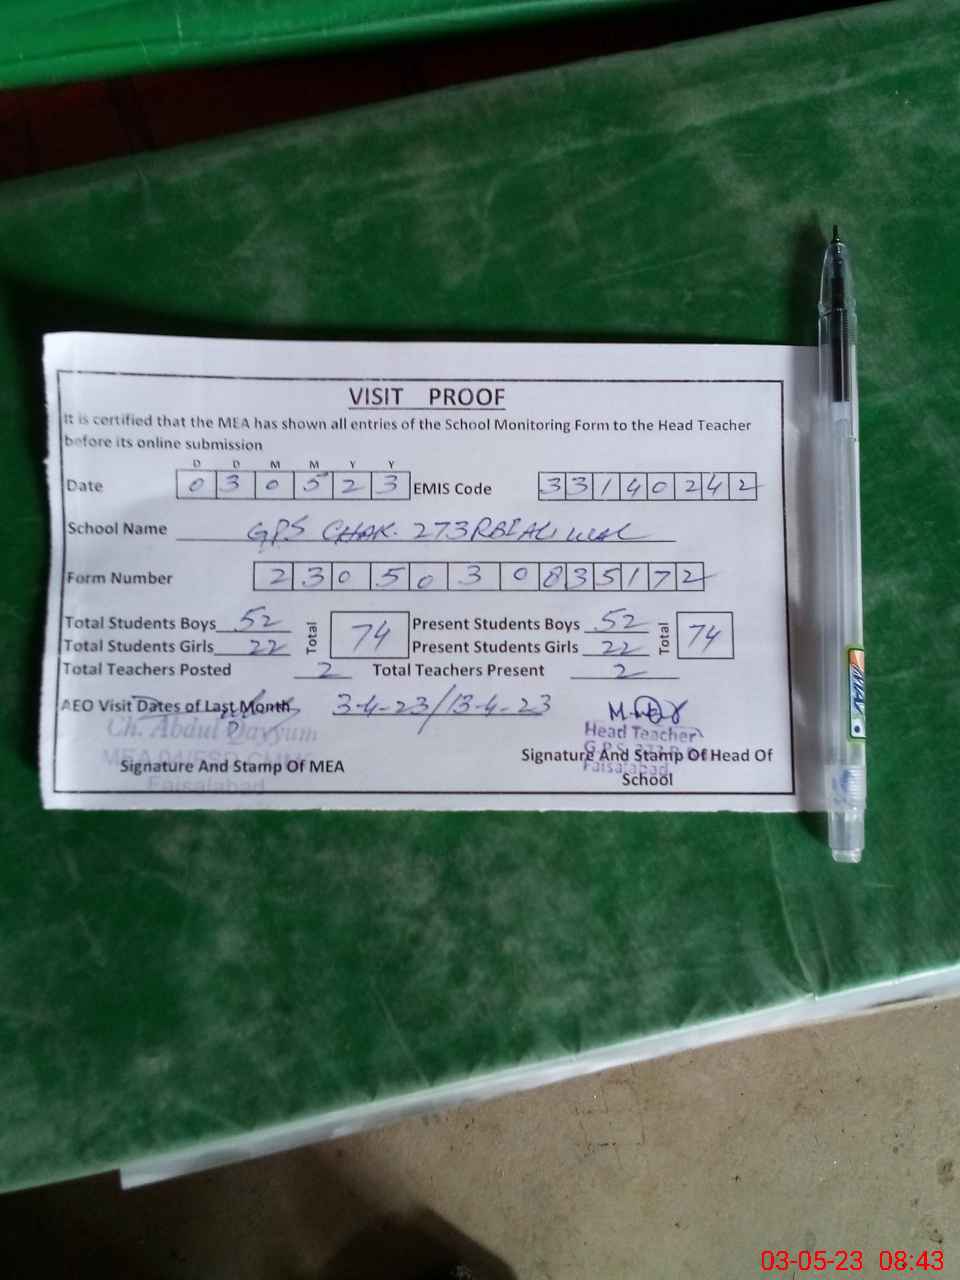 VISIT PROOF
It is certified that the MEA has shown all entries of the School Monitoring Form to the Head Teacher
before its online submission
D D M M Y Y
Date 0 3 0 5 2 3 EMIS Code 3 3 1 4 0 2 4 2
School Name GPS CHAK. 273RB
Form Number 2 3 0 5 0 3 0 8 3 5 1 7 2
Total Students Boys 52 Total 74 Present Students Boys 52 Total 74
Total Students Girls 22 Present Students Girls 22
Total Teachers Posted 2 Total Teachers Present 2
AEO Visit Dates of Last Month 3-4-23/13-4-23
Ch. Abdul Qayyum
Head Teacher
Signature And Stamp Of MEA
Signature And Stamp Of Head Of
School
Faisalabad
Faisalabad
03-05-23 08:43